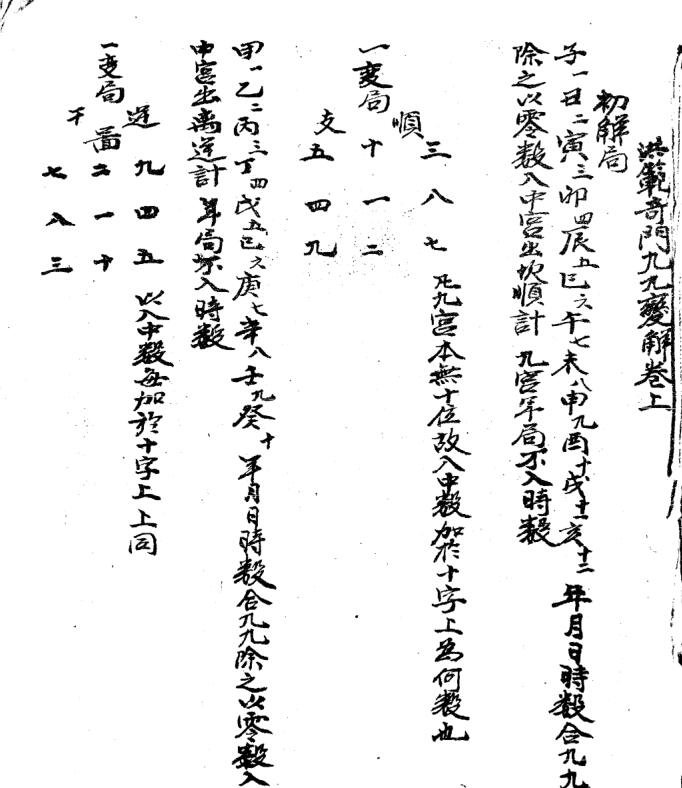 洪範奇門九九變解卷上
初解局
子一丑二寅三卯四辰五巳六午七未八申九酉十戌十一亥十二 年月日時數合九九
除之以零數入中宮出坎順計 九宮年局不入時數
順
三 八 七 凡九宮本無十位故入中數加於十字上為何數也
一變局 十 一 二
支 五 四 九
甲一乙二丙三丁四戊五己六庚七辛八壬九癸十 年月日時數合九九除之以零數入
中宮出离逆計 年局不入時數
逆 九 四 五 以入中數每加於十字上 上同
一變局 圖 六 一 十
干 七 八 三